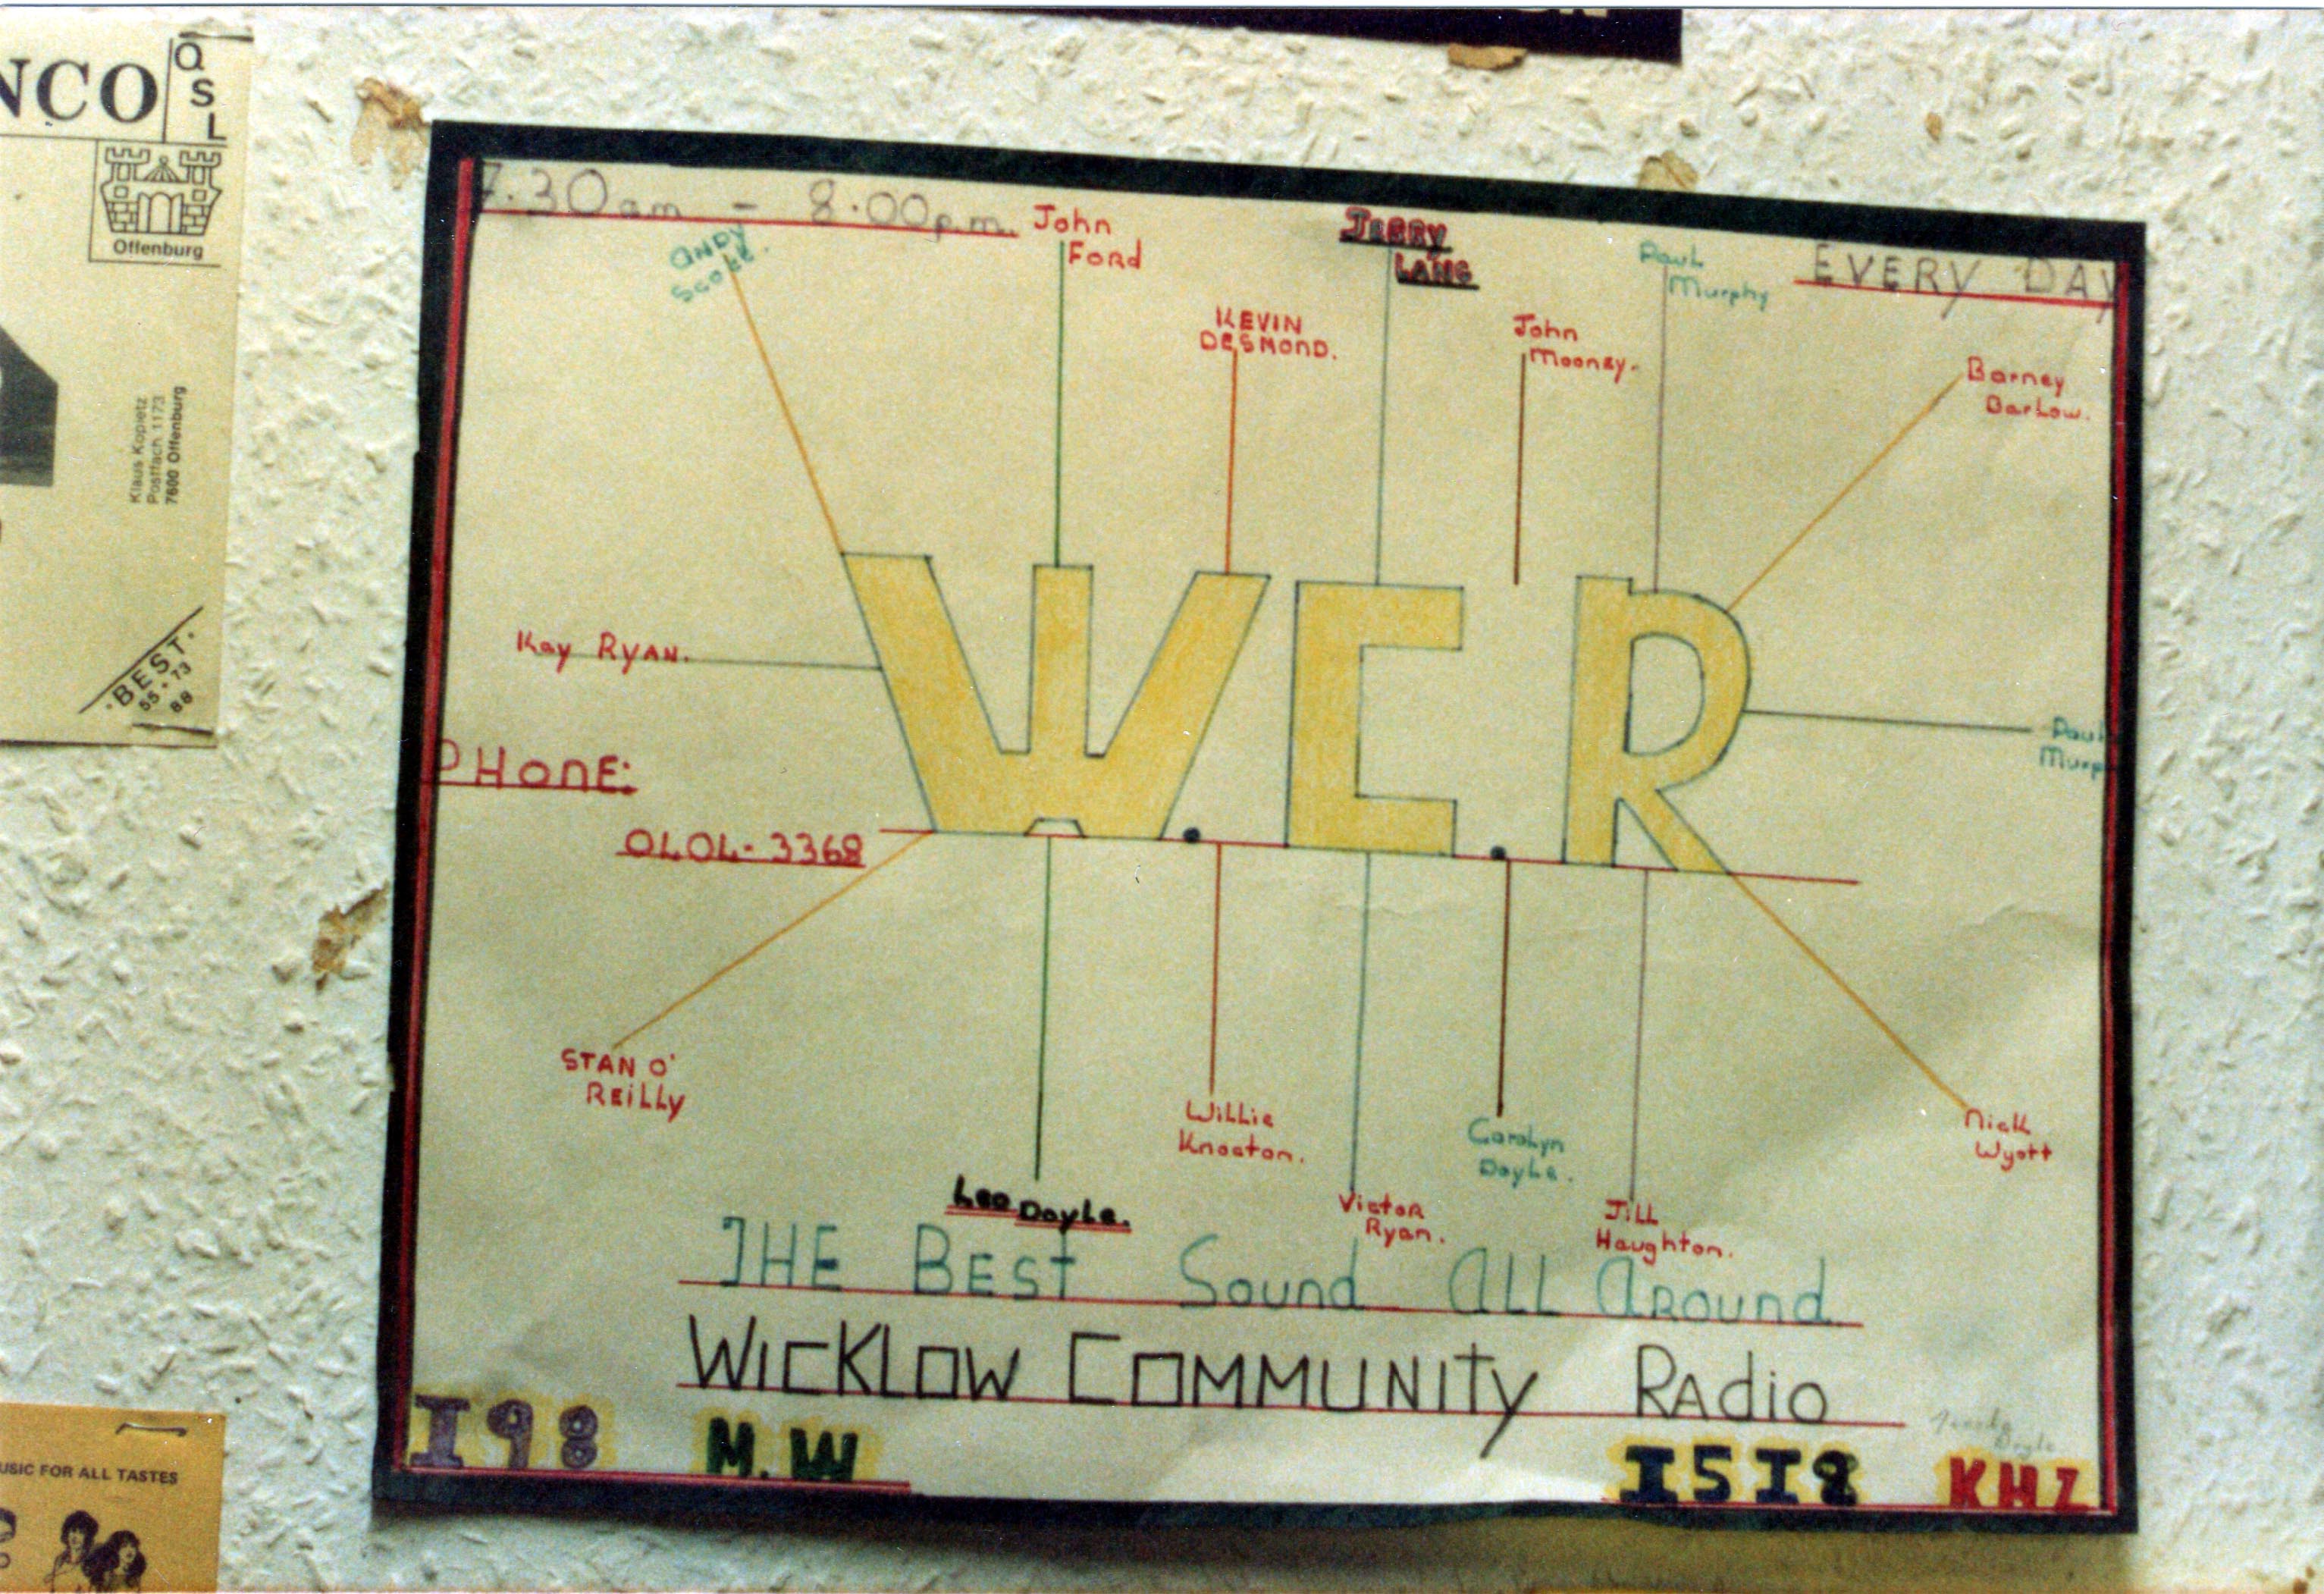 NCO
QSL
Offenburg
Klaus Kopetz
Postfach 1173
7600 Offenburg
·BEST·
55 + 73
88
USIC FOR ALL TASTES
7.30am - 8.00p.m.
EVERY DAY
ANDY
Scott.
John
Ford
KEVIN
DESMOND.
JERRY
LANG
John
Mooney.
Paul
Murphy
Barney
Barlow.
Kay RYAN.
W.E.R
Paul
Murp
PHONE:
0404-3368
STAN O'
REILLY
Leo Doyle.
Willie
Victor
Ryan.
Carolyn
Doyle.
JILL
Haughton.
Nick
Wyatt
THE BEST Sound ALL AROUND
WICKLOW COMMUNITY RADIO
Doyle
198 M.W
1518 KHZ